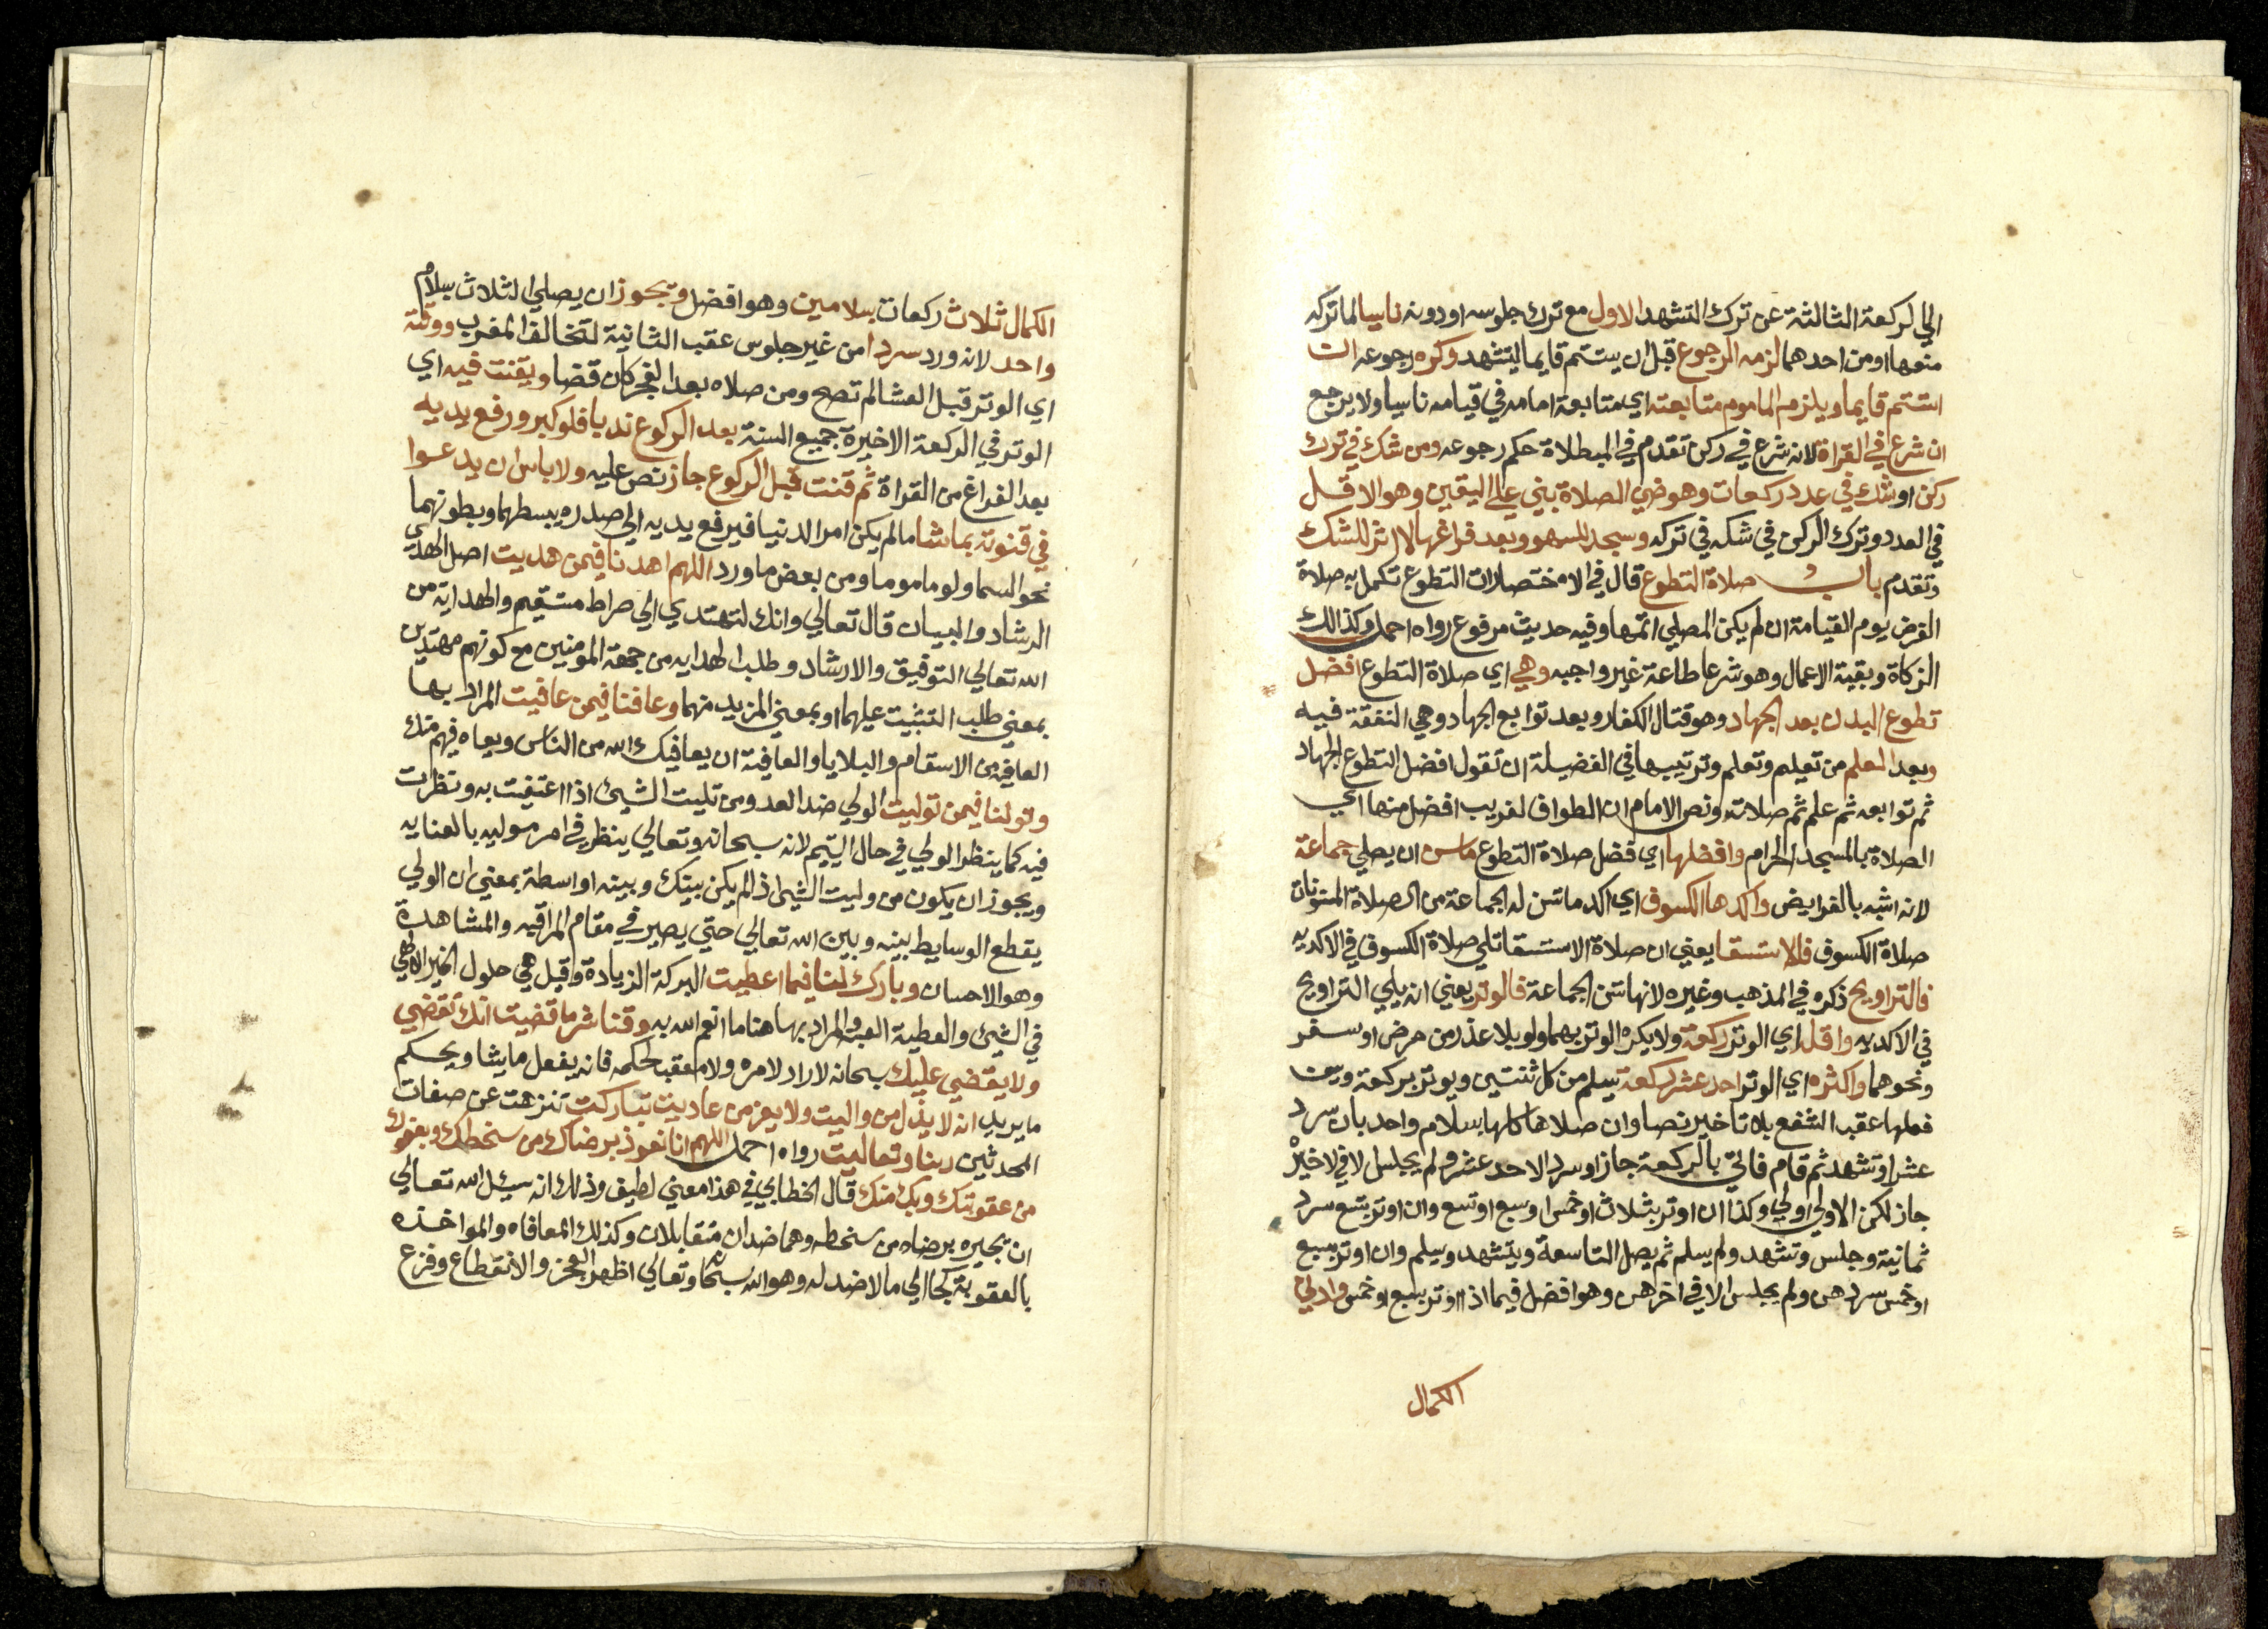 الي الركعة الثالثة عن ترك التشهد الاول مع ترك جلوسه او دونه ناسيا لما تركه
منهما او من احدهما لزمه الرجوع قبل ان يستتم قايما ليتشهد وكره رجوعه ان
استتم قايما ويلزم الماموم متابعته اي متابعة امامه في قيامه ناسيا ولا يرجع
ان شرع في القراة لانه شرع في ركن تقدم في المبطلاة حكم رجوعه ومن شك في ترك
ركن او شك في عدد ركعات وهو في الصلاة بني علي اليقين وهو الاقل
في العدد وترك الركن في شكه في تركه وسجد للسهو وبعد فراغها لا اثر للشك
وتقدم باب صلاة التطوع قال في الاختصارات التطوع تكمل به صلاة
الفرض يوم القيامة ان لم يكن المصلي اتمها وفيه حديث مرفوع رواه احمد وكذالك
الزكاة وبقية الاعمال وهو شرعا طاعة غير واجبه وهي اي صلاة التطوع افضل
تطوع البدن بعد الجهاد وهو قتال الكفار وبعد توابع الجهاد وهي النفقة فيه
وبعد العلم من تعليم وتعلم وترتيبها في الفضيلة ان تقول افضل التطوع الجهاد
ثم توابعه ثم علم ثم صلاته ونص الامام ان الطواف لغريب افضل منها اي
الصلاة بالمسجد الحرام وافضلها اي فضل صلاة التطوع ماسن ان يصلي جماعة
لانه اشبه بالفرايض واكدها الكسوف اي اكد ما تسن له الجماعة من الصلاة المسنونات
صلاة الكسوف فالاستسقا يعني ان صلاة الاستسقا تلي صلاة الكسوف في الاكديه
فالتراويح ذكره في المذهب وغيره لانها تسن الجماعة فالوتر يعني انه يلي التراويح
في الاكديه واقل اي الوتر ركعة ولا يكره الوتر بهما ولو بلا عذر من مرض او سفر
ونحوهما واكثره اي الوتر احد عشر ركعة يسلم من كل ثنتين ويوتر بركعة ويسن
فعلها عقب الشفع بلا تاخير نصا وان صلاها كلها بسلام واحد بان سرد
عشرا وتشهد ثم قام فاتي بالركعة جاز او سرد الاحد عشر ولم يجلس لا في لاخيرة
جاز لكن الاولي اولي وكذا ان اوتر بثلاث او خمس او سبع او تسع وان اوتر بتسع سرد
ثمانية وجلس وتشهد ولم يسلم ثم يصل التاسعة ويتشهد ويسلم وان اوتر بسبع
او خمس سردهن ولم يجلس الا في اخرهن وهو افضل فيما اذا اوتر بسبع او خمس وادني
الكمال
الكمال ثلاث ركعات بسلامين وهو افضل وبجوز ان يصلي الثلاث بسلام
واحد لانه ورد سردا من غير جلوس عقب الثانية لتخالف المغرب ووقته
اي الوتر قبل العشا لم تصح ومن صلاه بعد الفجر كان قضا ويقنت فيه اي
الوتر في الركعة الاخيرة جميع السنة بعد الركوع ندبا فلو كبر ورفع يديه
بعد الفراغ من القراة ثم قنت قبل الركوع جاز نص عليه ولا باس ان يدعوا
في قنوته بما شا ما لم يكن امر الدنيا فيرفع يديه الي صدره يبسطهما وبطونهما
نحو السما ولو ماموما ومن بعض ما ورد اللهم اهدنا فيمن هديت اصل الهدي
الرشاد والبيان قال تعالي وانك لتهتدي الي صراط مستقيم والهداية من
الله تعالي التوفيق والارشاد وطلب الهدايه من جهة المومنين مع كونهم مهتدين
بمعني طلب التثبيت عليهما او بمعني المزيد منهما وعافنا فيمن عافيت المراد بها
العافيه من الاسقام والبلايا والعافية ان يعافيك الله من الناس ويعاه فيهم منك
وتولنا فيمن توليت الولي ضد العدو من تليت الشيئ اذا اعتنيت به ونظرت
فيه كما ينظر الولي في حال اليتيم لانه سبحانه وتعالي ينظر في امر موليه بالعنايه
ويجوز ان يكون من وليت الشيئ اذ الم يكن بينك وبينه اواسطة بمعني ان الولي
يقطع الوسايط بينه وبين الله تعالي حتي يصير في مقام المراقبه والمشاهدة
وهو الاحسان وبارك لنا فيما اعطيت البركة الزيادة وقيل هي حلول الخير الالهي
في الشيئ والعطية الهبه والمراد بها هنا ما انعم الله به وقنا شر ما قضيت انك تقضي
ولا يقضي عليك سبحانه لا راد لامره ولا معقب لحكمه فانه يفعل ما يشا ويحكم
ما يريد انه لا يذل من واليت ولا يعز من عاديت تباركت تنزهت عن صفات
المحدثين ربنا وتعاليت رواه احمد اللهم انا نعوذ برضاك من سخطك وبعفوك
من عقوبتك وبك منك قال الخطابي في هذا معني لطيف وذلك انه سيئل الله تعالي
ان يجيره برضاه من سخطه وهما ضدان متقابلان وكذلك المعافاه والمواخذه
بالعقوبة لجا الي ما لا ضد له وهو الله سبحانه وتعالي اظهر العجز والانقطاع وفزع